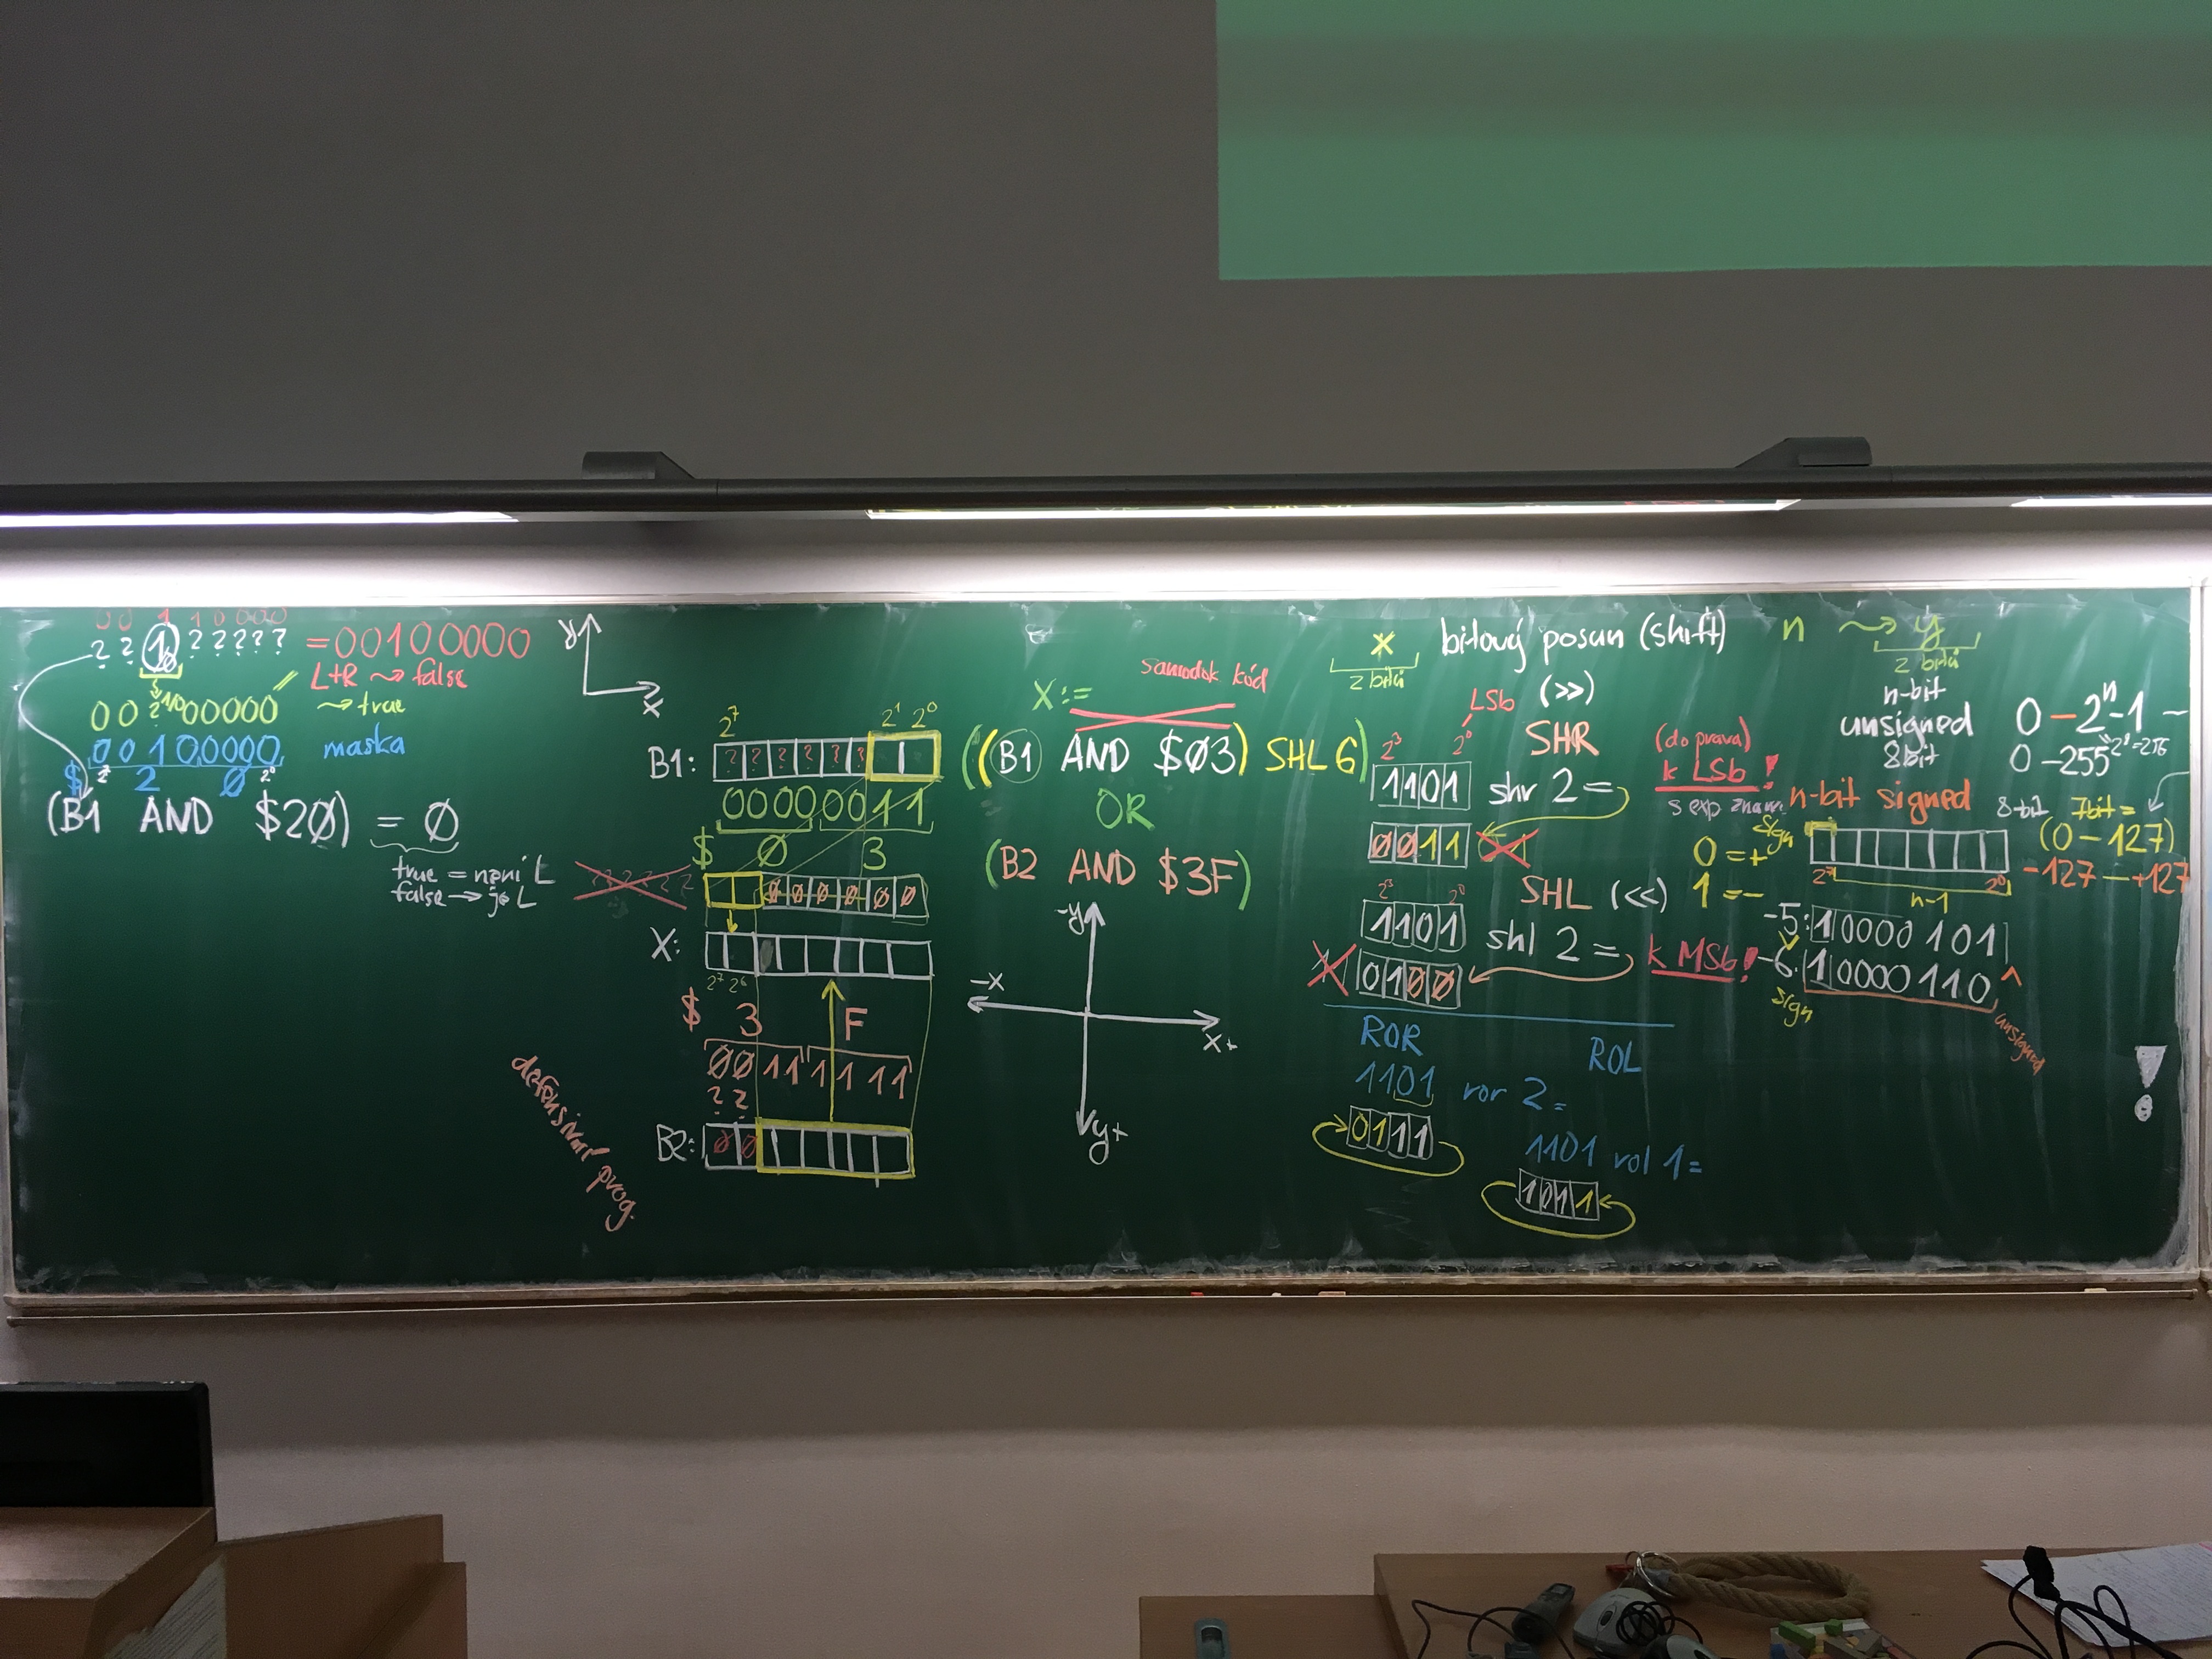 0 0 1 1 0 0 0 0
? ? 1 ? ? ? ? ? = 00100000
L+R ⤳ false
0 0 ? 00000 ⤳ true
0 0 1 0 0000 maska
$ 2⁷ 2 Ø 2⁰
(B1 AND $2Ø) = Ø
true = není L
false → je L
y
x
2⁷ 2¹ 2⁰
B1: ? ? ? ? ? ?
0000 0011
$ Ø 3
Ø Ø Ø Ø Ø Ø
X:
2⁷ 2⁶
$ 3 F
ØØ 11 11 11
? ?
B2: Ø Ø
defensivní prog.
samodok kód
X:=
((B1 AND $Ø3) SHL 6)
OR
(B2 AND $3F)
-y
-x
x+
y+
x
z bitů
bitový posun (shift)
n ⤳ y
z bitů
(>>)
LSb
SHR
2³ 2⁰
1101 shr 2 =
ØØ11 01
(do prava)
k LSb!
SHL (<<)
2³ 2⁰
1101 shl 2 =
11 01ØØ
k MSb!
ROR
1101 ror 2 =
0111
ROL
1101 rol 1 =
1011
n-bit
unsigned 0 – 2ⁿ-1
8bit 0 – 255 2⁸=256
n-bit signed 8-bit 7bit =
sign
(0 – 127)
-127 – +127
0 = +
1 = -
2⁷ 2⁰
n-1
-5: 10000 101
-6: 10000 110
sign
unsigned
!